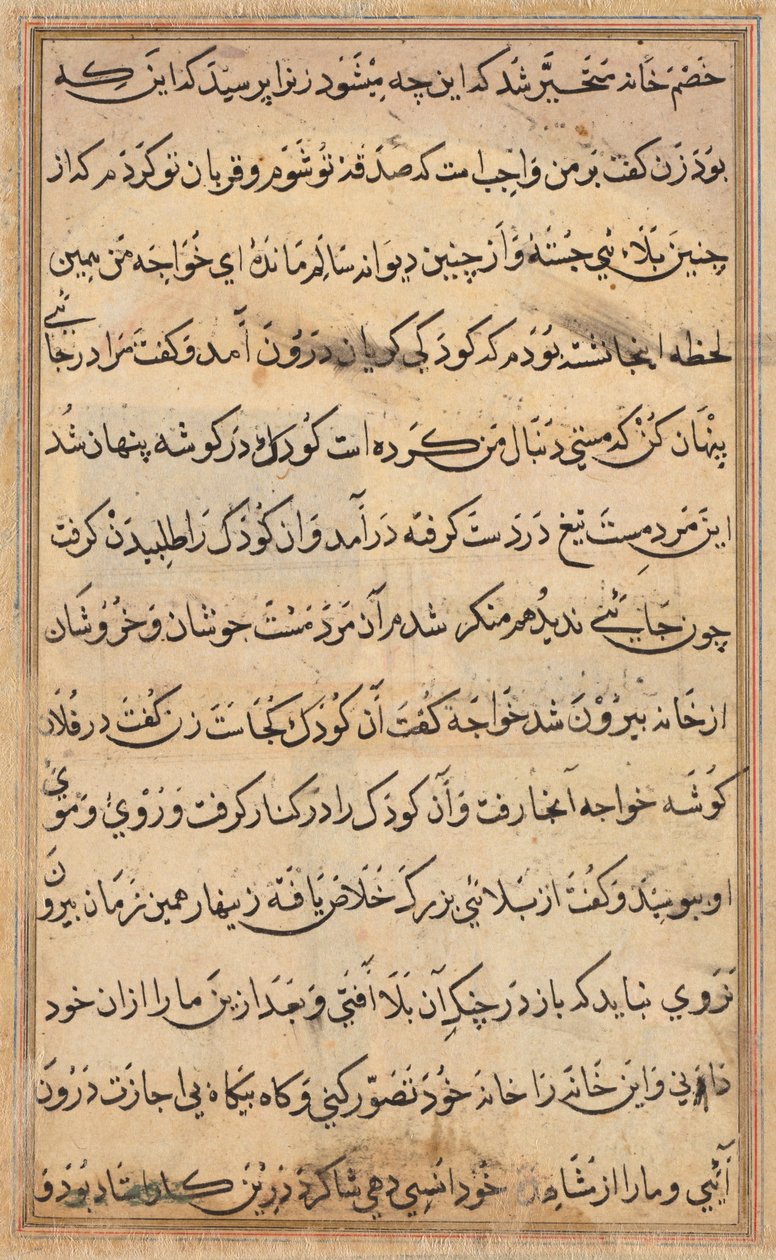 خَصْمِ خَانه مُتَحَيَّر شُد كه اين چه مِيْشَوَد زنرا پرسيد كه اين كِه
بُوَد زَن گفت بَر من وَاجِب است كه صَدَقهْ تُو شَوَم و قربان تو گردَم كه از
چنين بَلَاءئي جُستَهٔ وَ از چنين ديوانه سَالِم مَانده اي خُوَاجه مَن همين
لحظه اينجا نشسته بُودَم كه كودكي گريان دَرُونَ آمد وَ گفت مَرا در جائيے
پِنْهَان كُنْ كه مستي دَنبَال مَن كرَده است كُودك در گوشه پنهان شُد
اين مَرد مست تيغ دَر دست گرفته دَر آمد وَ ان كُودَك رَا طلبيدَنْ گرفت
چون جَايَئے نديد هم منكر شدم آن مَرد مَسْت جوشان وَ خُرُوشَان
از خَانه بيرُوْن شد خَوَاجَه گفت آن كُودَك كُجَا ست زن گفت در فُلَان
گوشَه خواجه آنجا رفت وَ آن كودَك را در كنار گرفت وَ رُوْيِ وَ مُوي
او ببوسيد وَ گفت از بَلائي بزرگ خَلَاص يَافتهٔ زينهار همين زمَان بيرون
نَرَوي نبايد كه باز دَر چنگِ آن بَلَا اُفتي وَ بَعْد ازين ما را از ان خود
داني وَ اين خَانه رَا خانه خُوْد تَصَوّر كني وَ گاه بيگاه بي اجازت دَرُون
آئيي و ما را از مُشَاهِده خُود انسي دهي شاگرد دَرين كار استاد بُود وَ